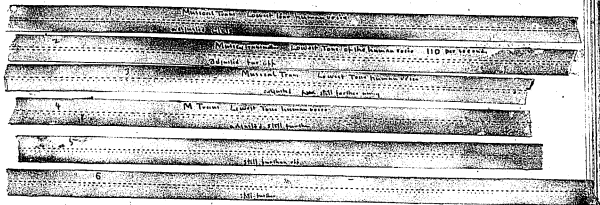 Musical Trans Lowest Tone human voice
2 Musical Trans Lowest Tone of the human voice 110 per second
adjusted far off
3 Musical Tran Lowest Tone human voice
adjusted still further away
4 M Trans Lowest Tone human voice
adjusted still further
5
still further off
6
still further